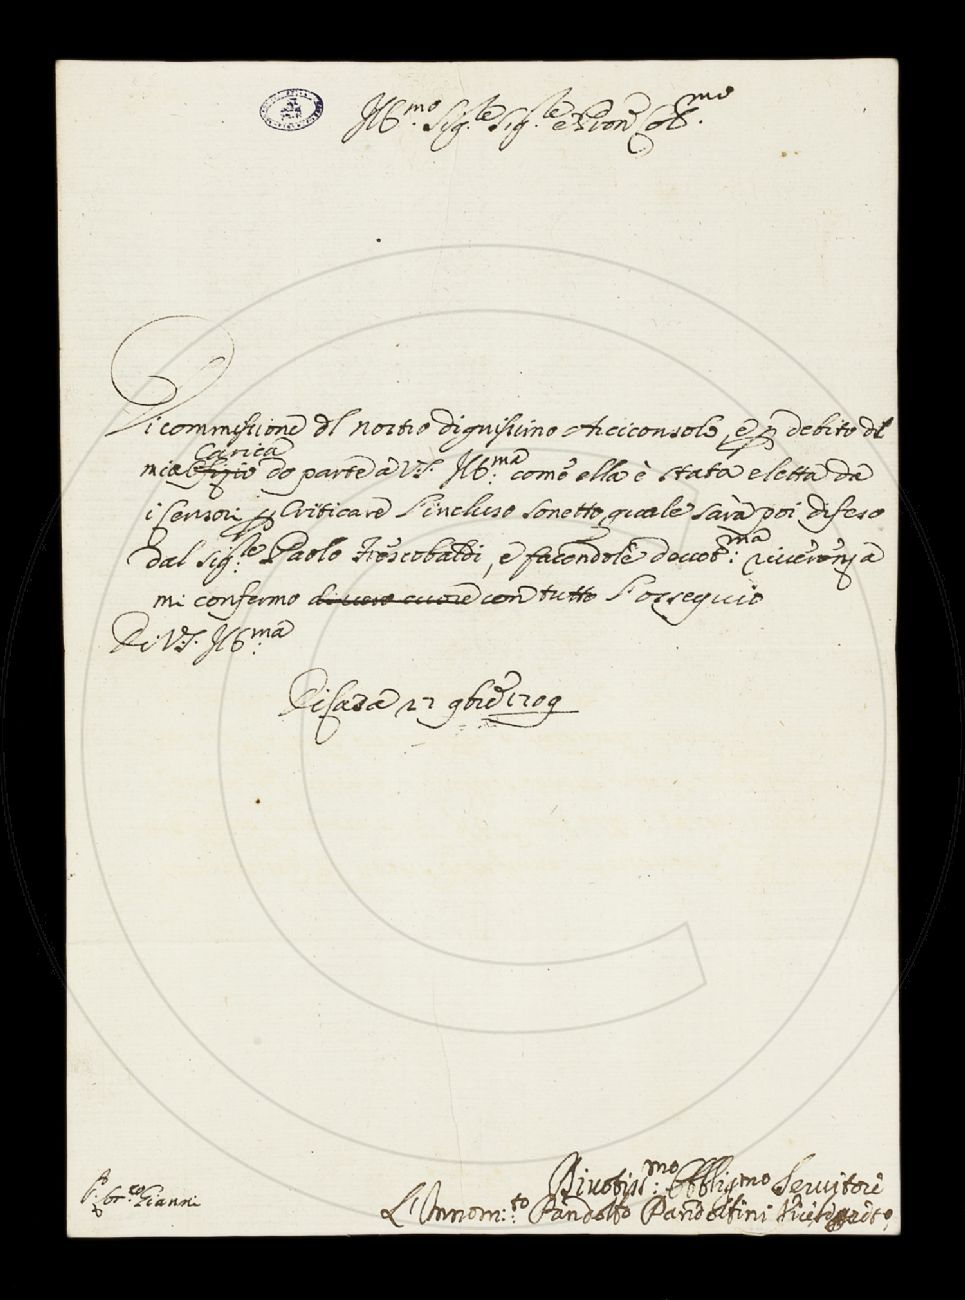 Ill:mo Sig:re Sig:re e Pron Col:mo
Di commissione dl nostro dignissimo Arciconsolo, e p debito dl
carica
mia ofizio do parte a V.S. Ill:ma come ella è stata eletta da
i Censori p Criticare l'incluso sonetto quale sarà poi difeso
dal Sig:re Paolo Frescobaldi, e facendole devot:ma riverenza
mi confermo di vero cuore con tutto l'ossequio
Di V.S. Ill:ma
Di Casa 9bre 1709
Divotiss:mo Obbligmo Servitore
L'Innom:to Pandolfo Pandolfini
Gianni